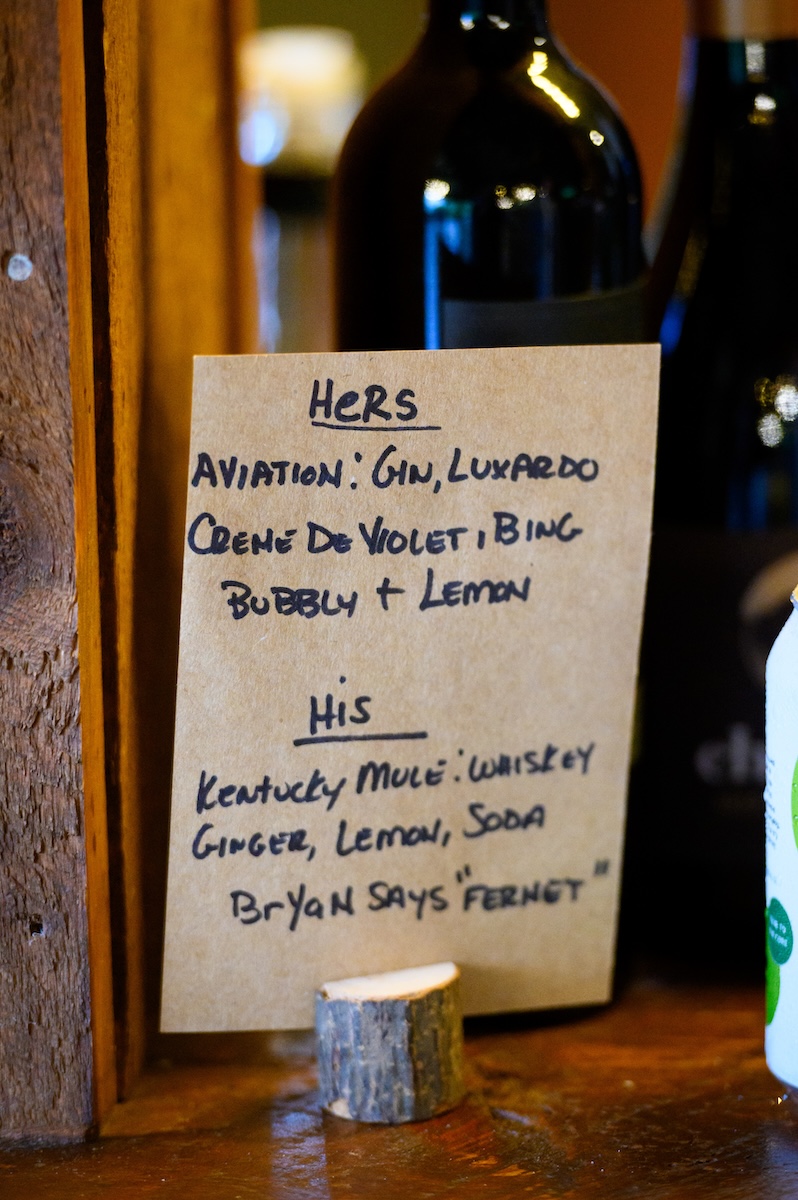 HeRS
AVIATION: GIN, LUXARDO
CREME DE VIOLET, BING
BUBBLY + LEMON
HiS
Kentucky MULE: WHISKEY
GINGER, LEMON, SODA
BrYaN SAYS "FERNET"